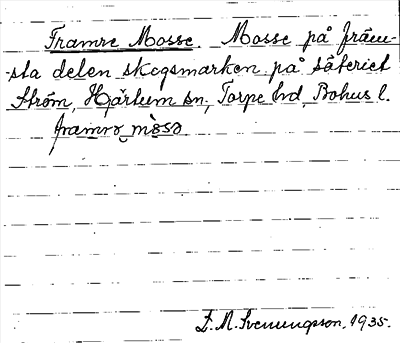 Framre Mosse. Mosse på främ-
-sta delen skogsmarken på säteriet
Ström, Hjärtum sn, Torpe hd, Bohus l.
framrə mòsə
L. M. Svenungsson, 1935.